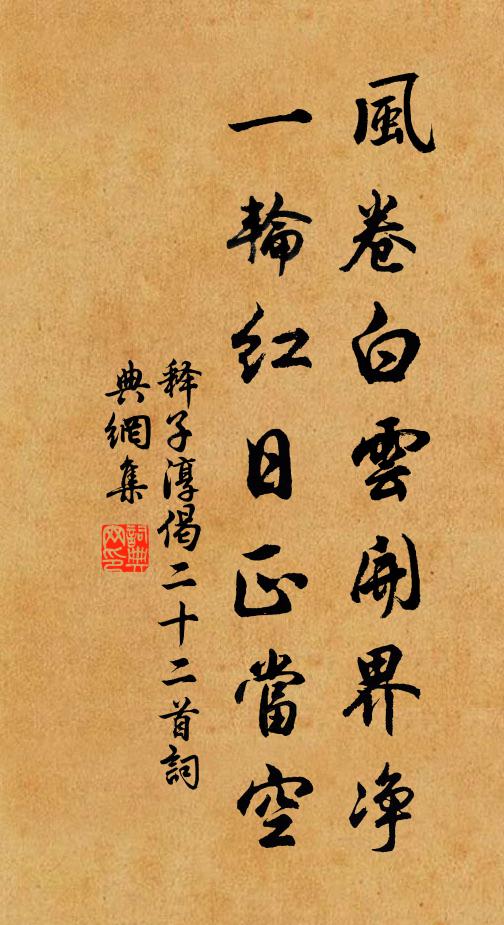 風卷白雲開界净
一輪紅日正當空
释子淳偈二十二首詞
典網集
詞典
网印